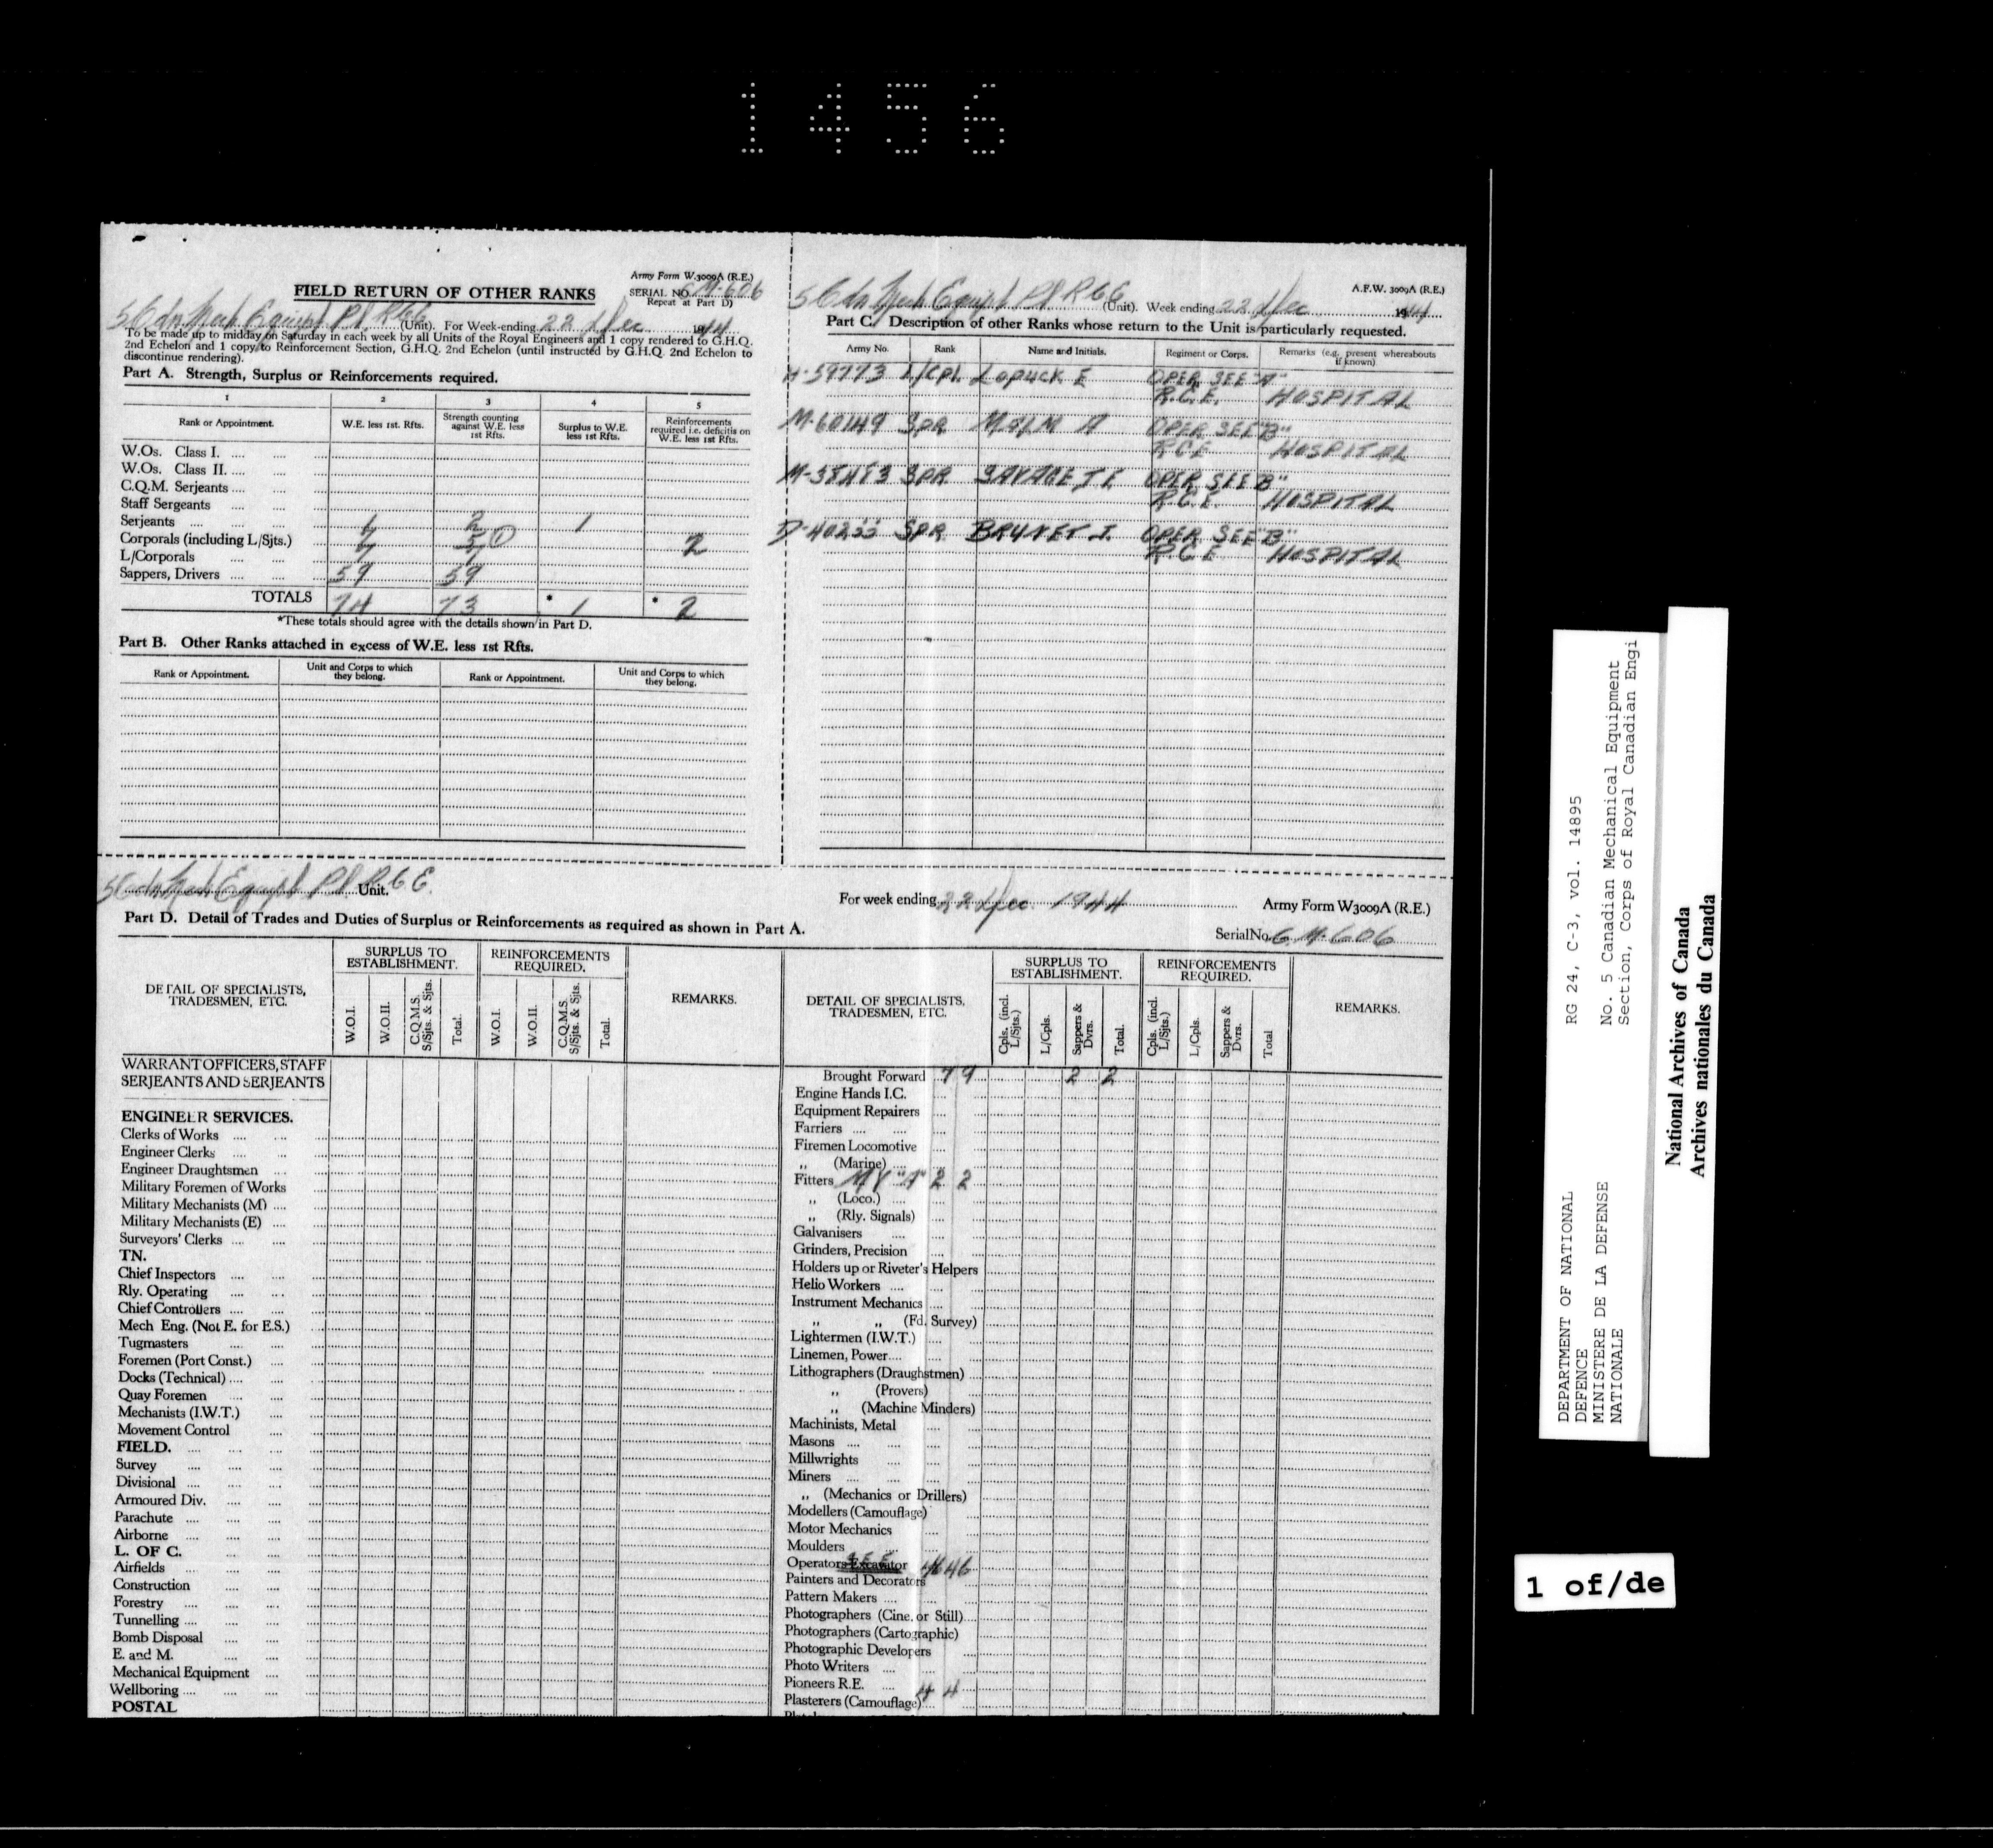 1456
Army Form W.3009A (R.E.)
FIELD RETURN OF OTHER RANKS
SERIAL NO. M-606
Repeat at Part D)
5 Cdn Mech Equipt Pl RCE (Unit). For Week-ending 22 Dec 1944
To be made up to midday on Saturday in each week by all Units of the Royal Engineers and 1 copy rendered to G.H.Q.
2nd Echelon and 1 copy to Reinforcement Section, G.H.Q. 2nd Echelon (until instructed by G.H.Q. 2nd Echelon to
discontinue rendering).
Part A. Strength, Surplus or Reinforcements required.
1 2 3 4 5
Rank or Appointment. W.E. less 1st. Rfts. Strength counting against W.E. less 1st Rfts. Surplus to W.E. less 1st Rfts. Reinforcements required i.e. deficits on W.E. less 1st Rfts.
W.Os. Class I.
W.Os. Class II.
C.Q.M. Serjeants
Staff Sergeants
Serjeants 1 2 1
Corporals (including L/Sjts.) 7 5 2
L/Corporals 7 7
Sappers, Drivers 59 59
TOTALS 74 73 * 1 * 2
*These totals should agree with the details shown in Part D.
Part B. Other Ranks attached in excess of W.E. less 1st Rfts.
Rank or Appointment. Unit and Corps to which they belong. Rank or Appointment. Unit and Corps to which they belong.
A.F.W. 3009A (R.E.)
5 Cdn Mech Equipt Pl RCE (Unit). Week ending 22 Dec 1944
Part C. Description of other Ranks whose return to the Unit is particularly requested.
Army No. Rank Name and Initials. Regiment or Corps. Remarks (e.g. present whereabouts if known)
H-59773 L/Cpl. Lopuck E OPER SEE "A"
R.C.E. HOSPITAL
M-60149 SPR MALM A OPER SEE "B"
RCE HOSPITAL
SPR SAVAGE J E OPER SEE B"
R.C.E. HOSPITAL
D-40233 SPR BRUNET J. OPER SEE "B"
R.C.E HOSPITAL
5 Cdn Mech Equipt Pl R.C.E. Unit. For week ending 22 Dec. 1944 Army Form W3009A (R.E.)
Part D. Detail of Trades and Duties of Surplus or Reinforcements as required as shown in Part A.
Serial No. C.M-606
DETAIL OF SPECIALISTS, TRADESMEN, ETC. SURPLUS TO ESTABLISHMENT. REINFORCEMENTS REQUIRED. REMARKS.
W.O.I. W.O.II. C.Q.M.S. S/Sjts. & Sjts. Total. W.O.I. W.O.II. C.Q.M.S. S/Sjts. & Sjts. Total.
WARRANT OFFICERS, STAFF
SERJEANTS AND SERJEANTS
ENGINEER SERVICES.
Clerks of Works
Engineer Clerks
Engineer Draughtsmen
Military Foremen of Works
Military Mechanists (M)
Military Mechanists (E)
Surveyors' Clerks
TN.
Chief Inspectors
Rly. Operating
Chief Controllers
Mech Eng. (Not E. for E.S.)
Tugmasters
Foremen (Port Const.)
Docks (Technical)
Quay Foremen
Mechanists (I.W.T.)
Movement Control
FIELD.
Survey
Divisional
Armoured Div.
Parachute
Airborne
L. OF C.
Airfields
Construction
Forestry
Tunnelling
Bomb Disposal
E. and M.
Mechanical Equipment
Wellboring
POSTAL
DETAIL OF SPECIALISTS, TRADESMEN, ETC. SURPLUS TO ESTABLISHMENT. REINFORCEMENTS REQUIRED. REMARKS.
Cpls. (incl. L/Sjts.) L/Cpls. Sappers & Dvrs. Total. Cpls. (incl. L/Sjts.) L/Cpls. Sappers & Dvrs. Total
Brought Forward 7 9 2 2
Engine Hands I.C.
Equipment Repairers
Farriers
Firemen Locomotive
,, (Marine)
Fitters MV "A" 2 2
,, (Loco.)
,, (Rly. Signals)
Galvanisers
Grinders, Precision
Holders up or Riveter's Helpers
Helio Workers
Instrument Mechanics
,, ,, (Fd. Survey)
Lightermen (I.W.T.)
Linemen, Power
Lithographers (Draughtsmen)
,, (Provers)
,, (Machine Minders)
Machinists, Metal
Masons
Millwrights
Miners
,, (Mechanics or Drillers)
Modellers (Camouflage)
Motor Mechanics
Moulders
Operators Excavator 46 46
Painters and Decorators
Pattern Makers
Photographers (Cine. or Still)
Photographers (Cartographic)
Photographic Developers
Photo Writers
Pioneers R.E. 4 4
Plasterers (Camouflage)
DEPARTMENT OF NATIONAL RG 24, C-3, vol. 14895
DEFENCE
MINISTERE DE LA DEFENSE No. 5 Canadian Mechanical Equipment
NATIONALE Section, Corps of Royal Canadian Engi
National Archives of Canada
Archives nationales du Canada
1 of/de